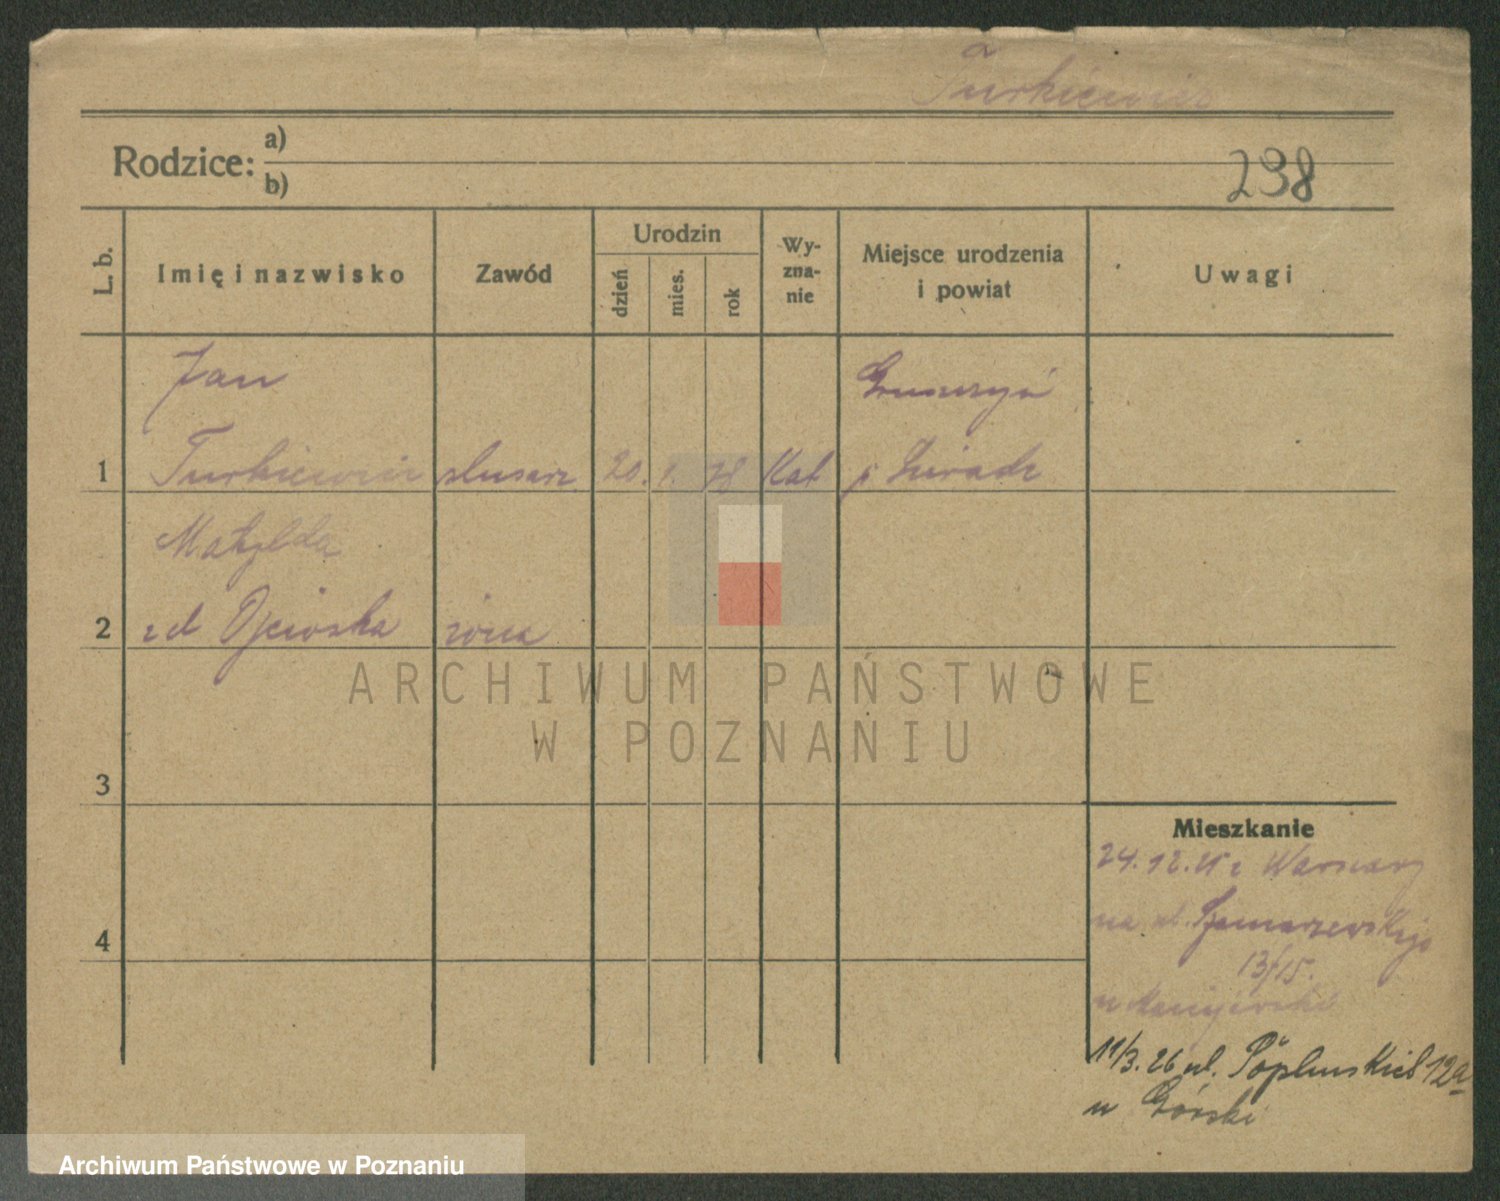 Turkiewicz
Rodzice: a)
b)
298
L. b.
Imię i nazwisko
Zawód
Urodzin
dzień
mies.
rok
Wy-
zna-
nie
Miejsce urodzenia
i powiat
Uwagi
Jan
1 Turkiewicz slusarz 20. 1. 78 Kat p Sieradz
Matylda
2 zd żona
3
4
Mieszkanie
24.12.25 z Warszawy
na ul. Szamarzewskiego
13/15.
u
11/3. 26 ul. 12a
u Górski
ARCHIWUM PAŃSTWOWE
W POZNANIU
Archiwum Państwowe w Poznaniu